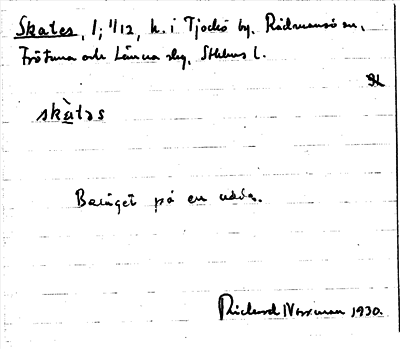 Skates, 1; 1/12, h. i Tjockö by, Rådmansö sn,
Frötuna och Länna slg, Sthlms l.
skàtəs
Beläget på en udde.
Rickard Norrman 1930.